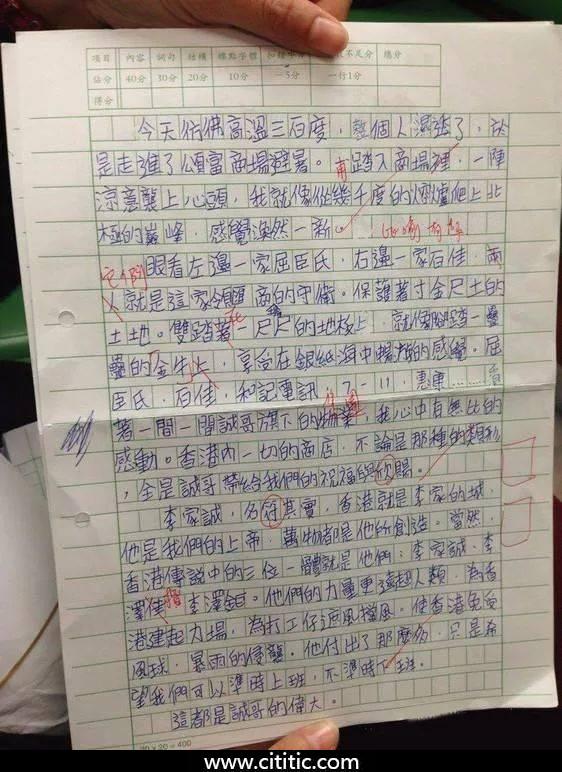 項目 內容 詞句 結構 標點字體 總分
佔分 40分 30分 20分 10分 －5分 一行1分
得分
今天彷彿高溫三百度，整個人濕透了，於
是走進了頌富商場避暑。甫踏入商場裡，一陣
涼意襲上心頭，我就像從幾千度的火爐爬上北
極的巔峰，感覺渙然一新。
它們
眼看左邊一家屈臣氏，右邊一家百佳，兩
人就是這家領匯商的守衛。保護著寸金尺土的
土地。雙踏著一尺尺的地板上，就像腳踏疊
疊的金牛上，享受在銀紙海中的感覺。屈
臣氏，百佳，和記電訊，7-11，惠康……看
著一間一間誠哥旗下的物業，我心中有無比的
感動。香港內一切的商店，不論是那種的類別
，全是誠哥帶給我們的祝福與欣賜。
李家誠，名符其實，香港就是李家的城，
他是我們的上帝，萬物都是他所創造。當然，
香港傳說中的三位一體就是他們：李家誠、李
澤楷、李澤鉅。他們的力量更強超人類，為香
港建起力場，為打工仔遮風擋風。使香港免受
風球、暴雨的侵襲。他付出了那麼多，只是希
望我們可以準時上班，不準時下班。
這都是誠哥的偉大。
20 x 20 = 400
www.cititic.com